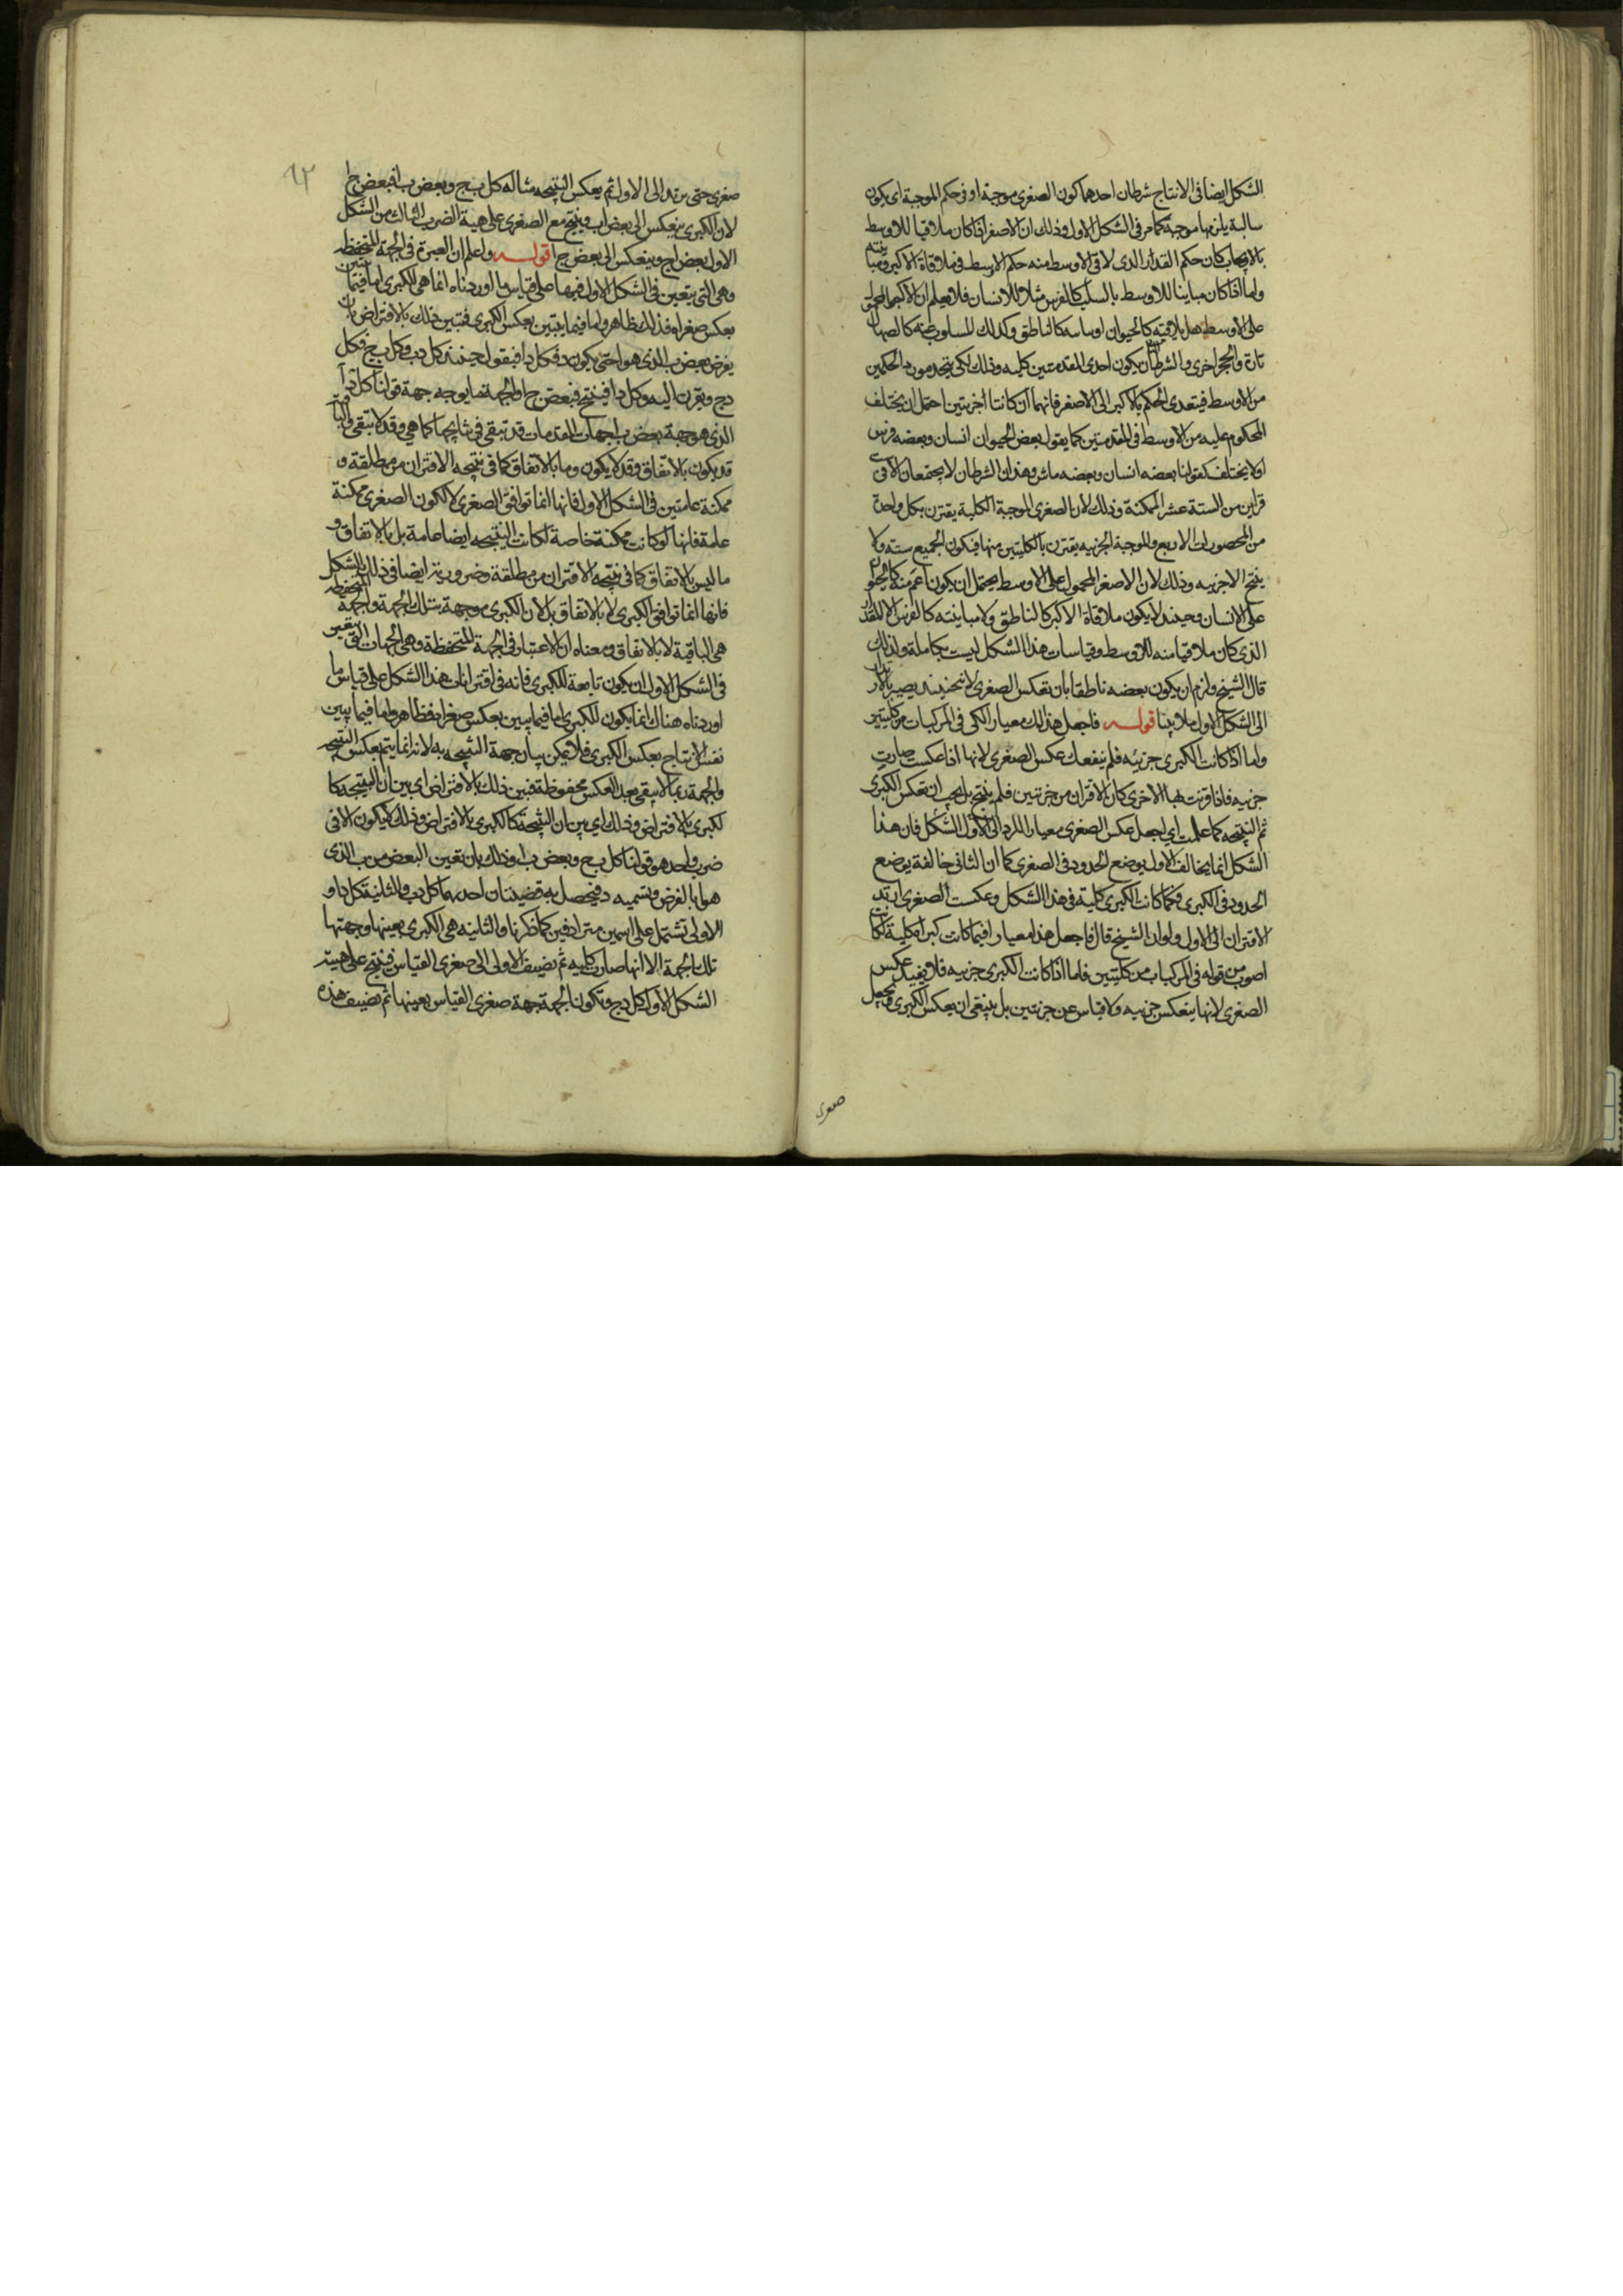 الشكل ايضا فى الانتاج شرطان احدهما كون الصغرى موجبة او فى حكم الموجبة اى يكون
سالبة يلزمها موجبة كما مر فى الشكل الاول وذلك ان الاصغر اذا كان ملاقيا للاوسط
بالايجاب كان حكم المقدار الذى لاقى الاوسط منه حكم الاوسط فى ملاقاة الاكبر ومباينته
واما اذا كان مباينا للاوسط بالسلب كالفرس مثلا للانسان فلا يعلم ان الاكبر المحمول
على الاوسط هل يلاقيه كالحيوان او يباينه كالناطق وكذلك المسلوب عنه كالصهال
تارة والحجر اخرى والشرط الثانى ان يكون احدى المقدمتين كليه وذلك لكى يتحد مورد الحكمين
من الاوسط فيتعدى الحكم بالاكبر الى الاصغر فانهما ان كانتا جزئيتين احتمل ان يختلف
المحكوم عليه من الاوسط فى المقدمتين كما يقول بعض الحيوان انسان وبعضه فرس
اولا يختلف كقولنا بعضه انسان وبعضه ماش وهذان الشرطان لا يجتمعان الا فى
قراين من الستة عشر الممكنة وذلك لان الصغرى الموجبة الكلية يقترن بكل واحدة
من المحصورات الاربع والموجبة الجزئيه يقترن بالكليتين منها فيكون الجميع ستة ولا
ينتج الا جزئيه وذلك لان الاصغر المحمول على الاوسط يحتمل ان يكون اعم منه كالحيوان
على الانسان وحينئذ لا يكون ملاقاة الاكبر كالناطق ولا مباينته كالفرس الا للمقدار
الذى كان ملاقيا منه للاوسط وقياسات هذا الشكل ليست بكاملة ولذلك
قال الشيخ ولزم ان يكون بعضه ناطقا بان تعكس الصغرى لان حينئذ يصير بالارتداد
الى الشكل الاول ملا بينا قوله فاجعل هذا لك معيارا لكى فى المركبات من كليتين
واما اذا كانت الكبرى جزئيه فلم ينفعك عكس الصغرى لانها اذا عكست صارت
جزئيه فاذا قرنت لها الاخرى كان الاقتران من جزئيتين فلم ينتج بل يجب ان تعكس الكبرى
ثم النتيجه كما علمت اى اجعل عكس الصغرى معيارا للرد الى الاول الشكل فان هذا
الشكل انما يخالف الاول بوضع الحدود فى الصغرى كما ان الثانى خالفه بوضع
الحدود فى الكبرى فكما كانت الكبرى كلية فى هذا الشكل وعكست الصغرى ارتد
الاقتران الى الاول ولو ان الشيخ قال فاجعل هذا معيارا فيما كانت كبراه كلية لكان
اصوب من قوله فى المركبات من كليتين فاما اذا كانت الكبرى جزئيه فلا يفيد عكس
الصغرى لانها ينعكس جزئيه ولا قياس عن جزئيتين بل ينبغى ان يعكس الكبرى ويجعل
صغرى
٦٣
صغرى حتى يرتد الى الاول ثم يعكس النتيجه مثاله كل ب ج وبعض ب ا فبعض ج ا
لان الكبرى ينعكس الى بعض ا ب وينتج مع الصغرى على هيئة الضرب الثالث من الشكل
الاول بعض ا ج وينعكس الى بعض ج ا قوله واعلم ان العبرة فى الجهة المتحفظه
وهى التى يتعين فى الشكل الاول فيها على قياس ما اوردناه انما هى الكبرى اما فيما يتبين
بعكس صغراه فذلك ظاهر واما فيما يتبين بعكس الكبرى فتبين ذلك بالافتراض بان
يفرض بعض ب الذى هو ا حتى يكون د فكل د ا فيقول حينئذ كل د ب وكل ب ج فكل
د ج ويقرن اليه وكل د ا فينتج فبعض ج ا والجهة ما يوجبه جهة قولنا كل د ا
الذى هو جهة بعض ب ا جهات المقدمات قد تبقى فى نتايجها كما هى وقد لا تبقى والباقية
قد يكون بالاتفاق وقد لا يكون وما بالاتفاق كما فى نتيجه الاقتران من مطلقة و
ممكنة عامتين فى الشكل الاول فانها انما توافق الصغرى لا لكون الصغرى ممكنة
عامة فانها لو كانت ممكنة خاصة لكانت النتيجه ايضا عامة بل بالاتفاق و
ما ليس بالاتفاق كما فى نتيجه الاقتران من مطلقة وضرورية ايضا فى ذلك الشكل
فانها انما توافق الكبرى لا بالاتفاق بل لان الكبرى موجهة بتلك الجهة والجهة المتحفظه
هى الباقية لا بالاتفاق ومعناه ان الاعتبار فى الجهة المتحفظة وهى الجهات التى يتعين
فى الشكل الاول ان يكون تابعة للكبرى فانه فى اقترانات هذا الشكل على قياس ما
اوردناه هناك انما يكون للكبرى اما فيما يبين بعكس صغراه فظاهر واما فيما يبين
نفس الانتاج بعكس الكبرى فلا يمكن بيان جهة النتيجه به لانه انما يتم بعكس النتيجه
والجهة ربما لا يبقى بعد العكس محفوظة فبين ذلك بالافتراض اى بين ان النتيجه كا
لكبرى بالافتراض وذلك اى بين ان النتيجة كالكبرى بالافتراض وذلك لا يكون الا فى
ضرب واحد هو قولنا كل ب ج وبعض ب ا وذلك بان تعين البعض من ب الذى
هو ا بالفرض وتسميه د فيحصل به قضيتان احديهما كل د ب والثانية كل د ا و
الاولى تشتمل على اسمين مترادفين كما ذكرنا والثانيه هى الكبرى بعينها وجهتها
تلك الجهة الا انها صارت كليه ثم تضيف الاولى الى صغرى القياس فينتج على هيئة
الشكل الاول كل د ج وتكون الجهة جهة صغرى القياس بعينها ثم تضيف هذه